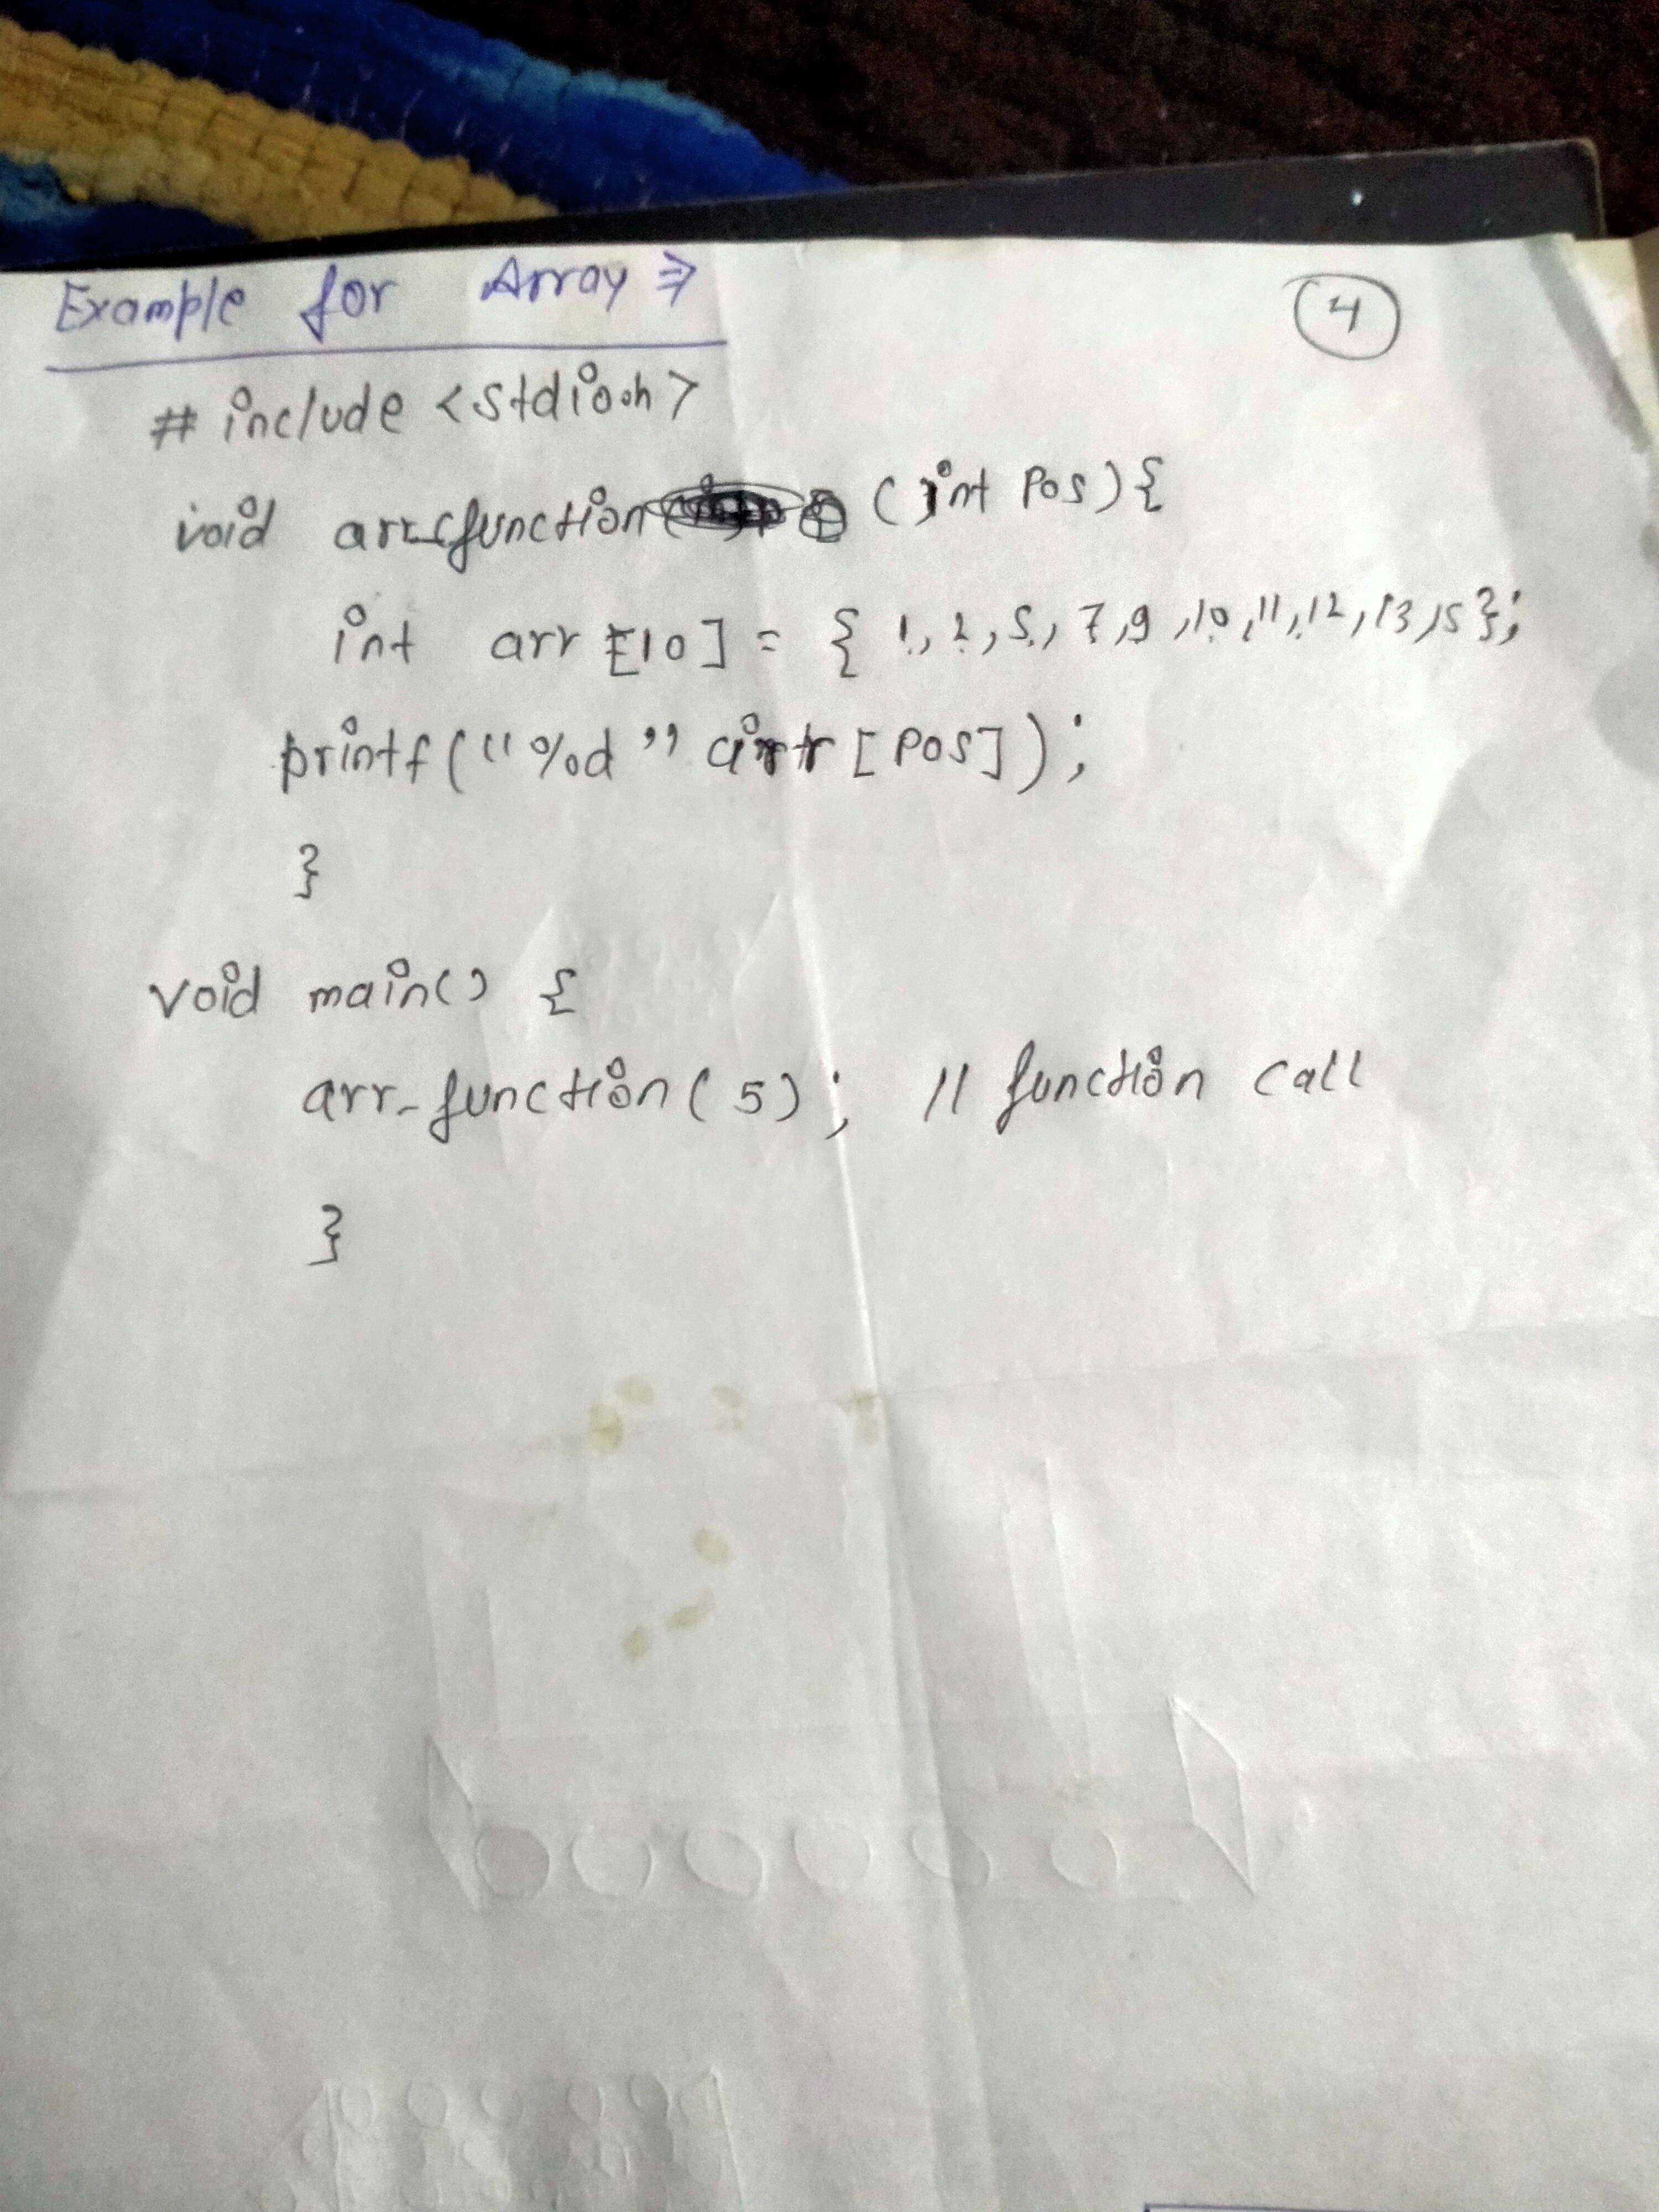 Example for Array ⇒
4
# include <stdio.h>
void arr_function (int Pos) {
int arr [10] = { 1, 2, 5, 7, 9, 10, 11, 12, 13, 15 };
printf ("%d" arr [Pos]);
}
void main() {
arr_function( 5) ; // function call
}